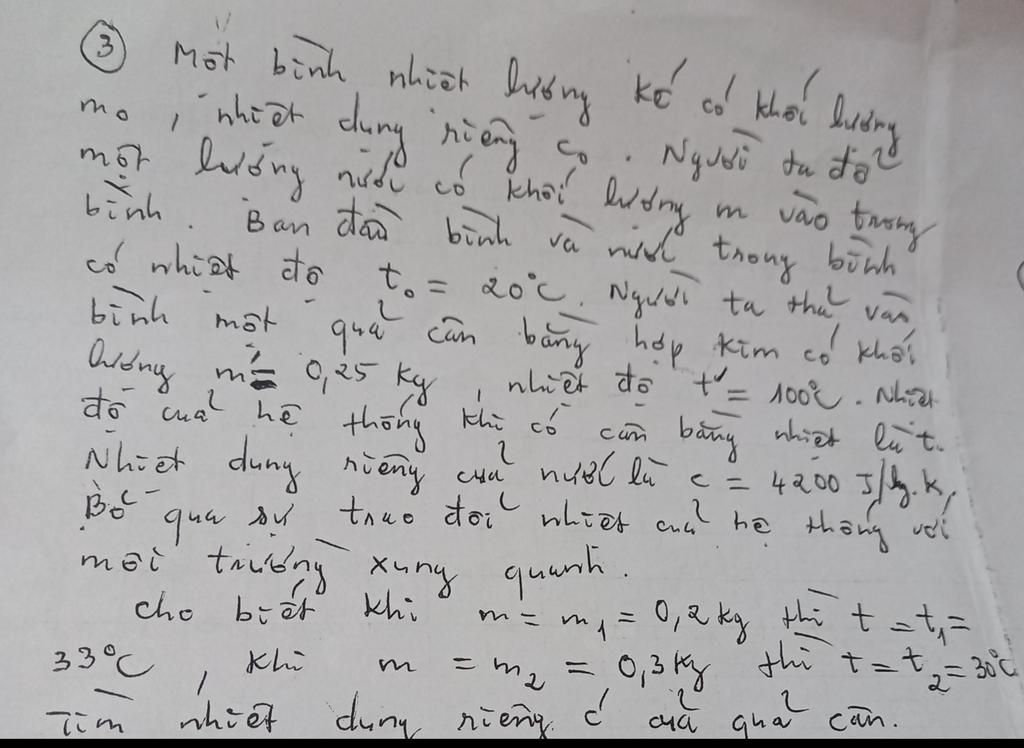 ③ Một bình nhiệt lượng kế có khối lượng
m₀, nhiệt dung riêng c₀. Người ta đổ
một lượng nước có khối lượng m vào trong
bình. Ban đầu bình và nước trong bình
có nhiệt độ t₀ = 20°C. Người ta thả vào
bình một quả cân bằng hợp kim có khối
lượng m' = 0,25 kg, nhiệt độ t' = 100°C. Nhiệt
độ của hệ thống khi có cân bằng nhiệt là t.
Nhiệt dung riêng của nước là c = 4200 J/kg.K,
Bỏ qua sự trao đổi nhiệt của hệ thống với
môi trường xung quanh.
Cho biết khi m = m₁ = 0,2 kg thì t = t₁ =
33°C, khi m = m₂ = 0,3 kg thì t = t₂ = 30°C
Tìm nhiệt dung riêng c' của quả cân.